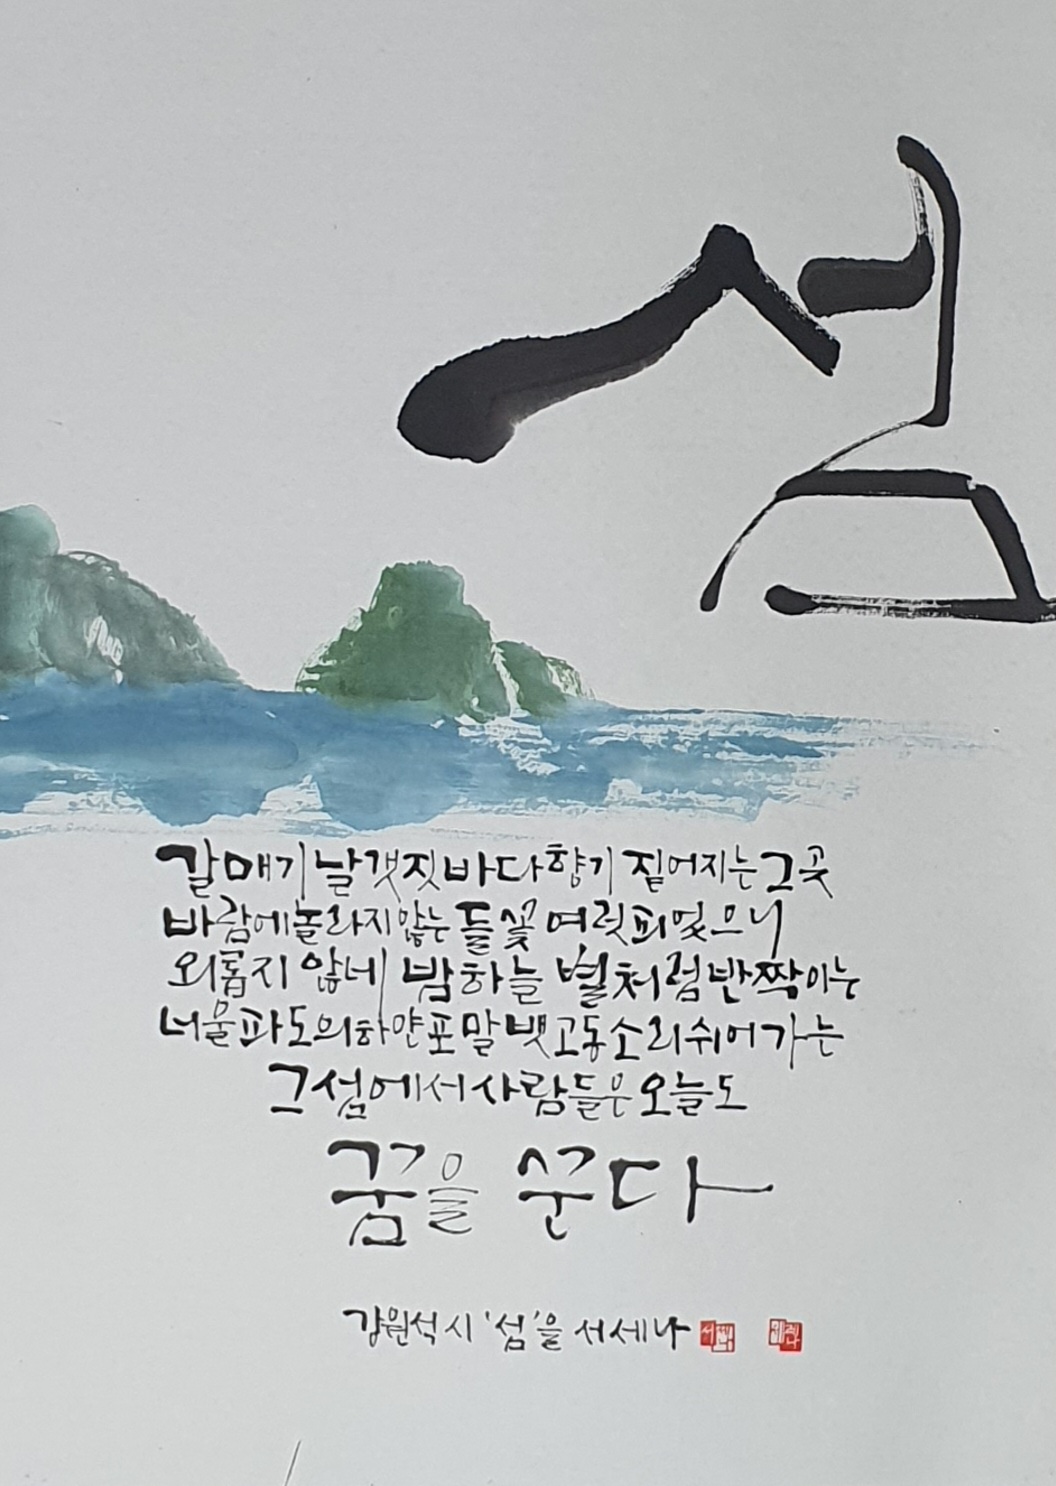 섬
갈매기 날갯짓 바다향기 짙어지는 그 곳
바람에 놀라지 않는 들꽃 여럿 피었으니
외롭지 않네 밤하늘 별처럼 반짝이는
너울파도의 하얀포말 뱃고동소리 쉬어가는
그 섬에서 사람들은 오늘도
꿈을 꾼다
강원석 시 '섬'을 서세나